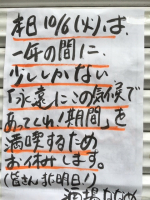 本日10/6(火)は、
一年の間に、
少ししかない
「永遠にこの気候で
あってくれ!期間」を
満喫するため
お休みします。
(皆さんまた明日!)
酒場